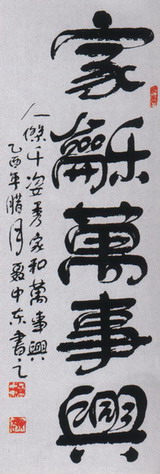 家龢萬事興
人傑千姿秀家和萬事興
乙酉年臘月聂中东書之